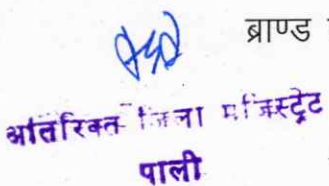 ब्राण्ड
अतिरिक्त जिला मजिस्ट्रेट
पाली